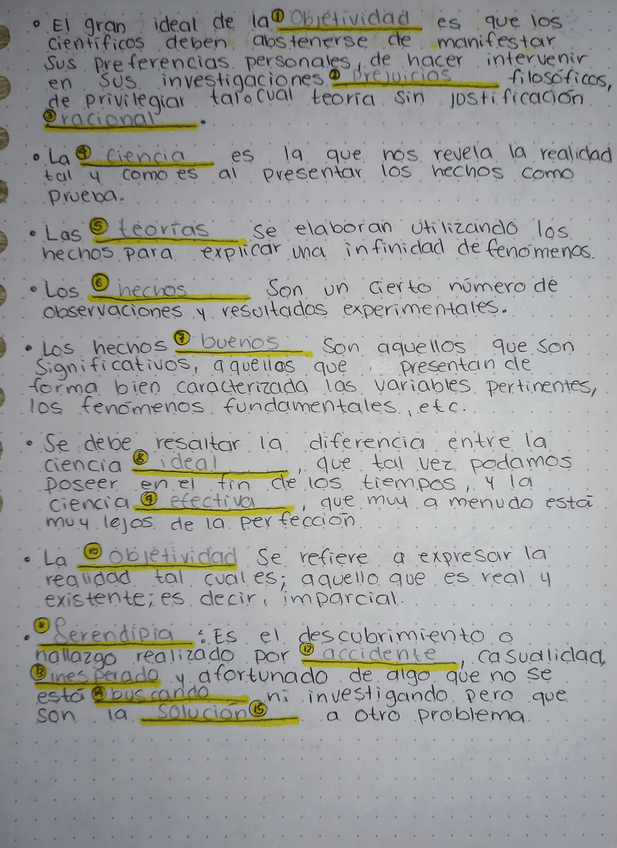 • El gran ideal de la ① Objetividad es que los
científicos deben abstenerse de manifestar
sus preferencias personales, de hacer intervenir
en sus investigaciones ② prejuicios filosóficos,
de privilegiar tal o cual teoría sin jostificación
③ racional.
• La ④ ciencia es la que nos revela la realidad
tal y como es al presentar los hechos como
prueba.
• Las ⑤ teorías se elaboran utilizando los
hechos para explicar una infinidad de fenómenos.
• Los ⑥ hechos son un cierto número de
observaciones y resultados experimentales.
• Los hechos ⑦ buenos son aquellos que son
significativos, aquellos que presentan de
forma bien caracterizada las variables pertinentes,
los fenómenos fundamentales, etc.
• Se debe resaltar la diferencia entre la
ciencia ⑧ ideal, que tal vez podamos
poseer en el fin de los tiempos, y la
ciencia ⑨ efectiva, que muy a menudo está
muy lejos de la perfección
• La ⑩ objetividad se refiere a expresar la
realidad tal cual es; aquello que es real y
existente; es decir, imparcial.
• Serendipia: Es el descubrimiento o
hallazgo realizado por ⑫ accidente, casualidad,
⑬ inesperado y afortunado de algo que no se
está ⑭ buscando ni investigando pero que
son la solución ⑮ a otro problema.